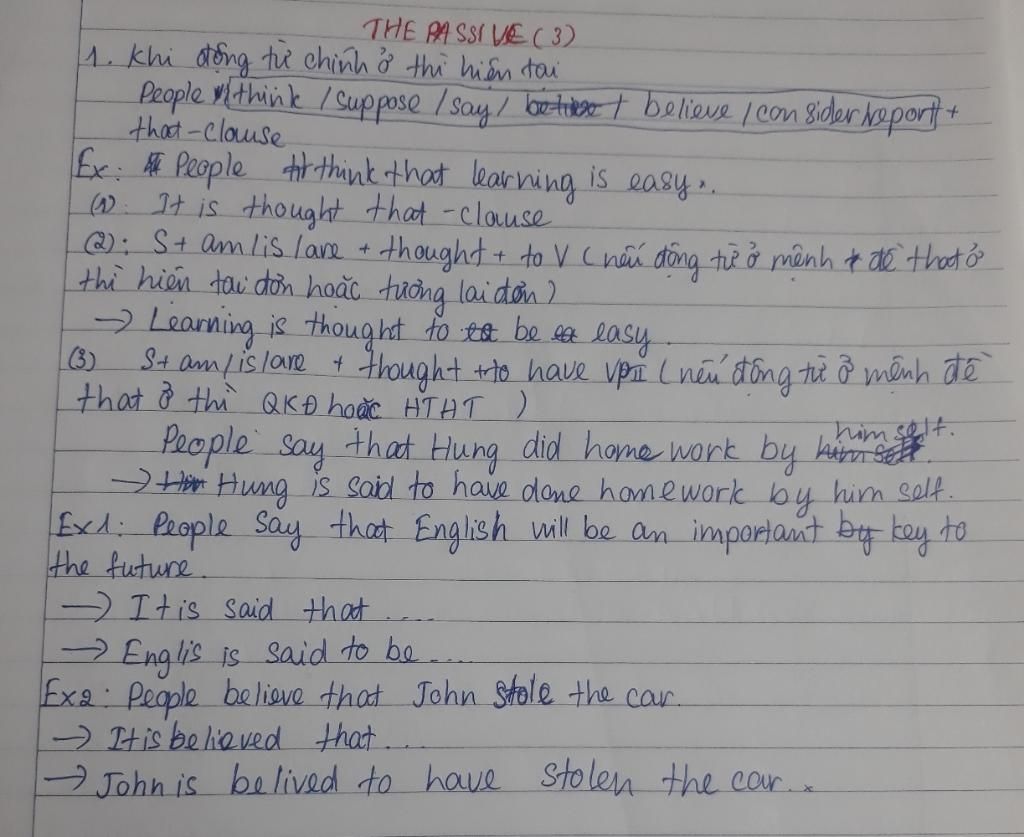 THE PASSIVE (3)
1. Khi động từ chính ở thì hiện tại
People think / suppose / say / believe / consider / report +
that-clause
Ex: People think that learning is easy.
(1): It is thought that -clause
(2): S + am / is / are + thought + to V (nếu động từ ở mệnh đề that ở
thì hiện tại đơn hoặc tương lai đơn)
→ Learning is thought to be easy.
(3) S + am / is / are + thought + to have VpII (nếu động từ ở mệnh đề
that ở thì QKĐ hoặc HTHT )
People say that Hung did homework by himself.
→ Hung is said to have done homework by him self.
Ex1: People say that English will be an important key to
the future.
→ It is said that ....
→ Englis is said to be ....
Ex2: People believe that John stole the car.
→ It is believed that ...
→ John is belived to have stolen the car.